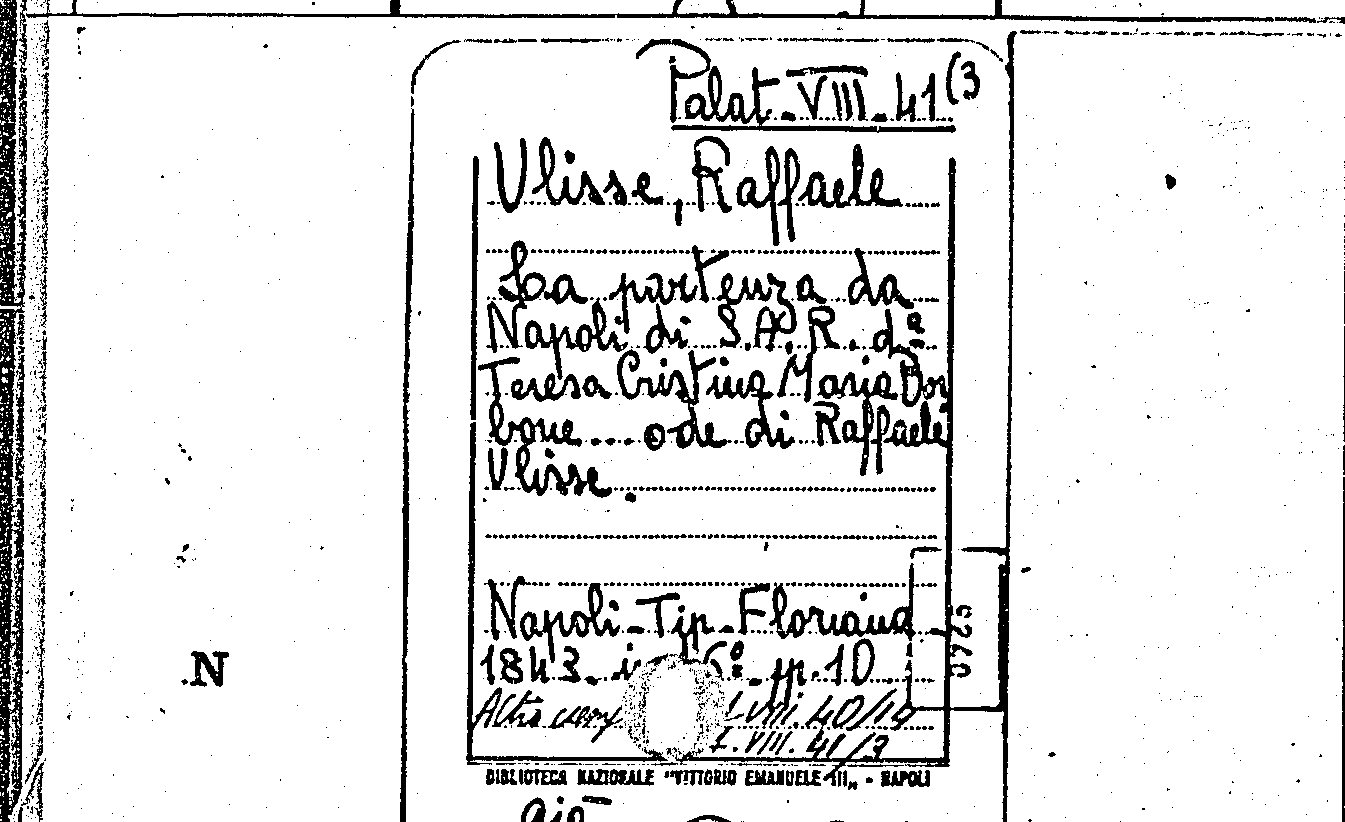 Palat. VIII. 41 (3
Ulisse, Raffaele
La partenza da
Napoli di S.A.R. d.ª
Teresa Cristina Maria Bor
bone... ode di Raffaele
Ulisse.
Napoli - Tip. Floriana
1843. 6º. pp. 10
Altro VIII. 40/19
VIII. 41/3
BIBLIOTECA NAZIONALE "VITTORIO EMANUELE III" - NAPOLI
già
N